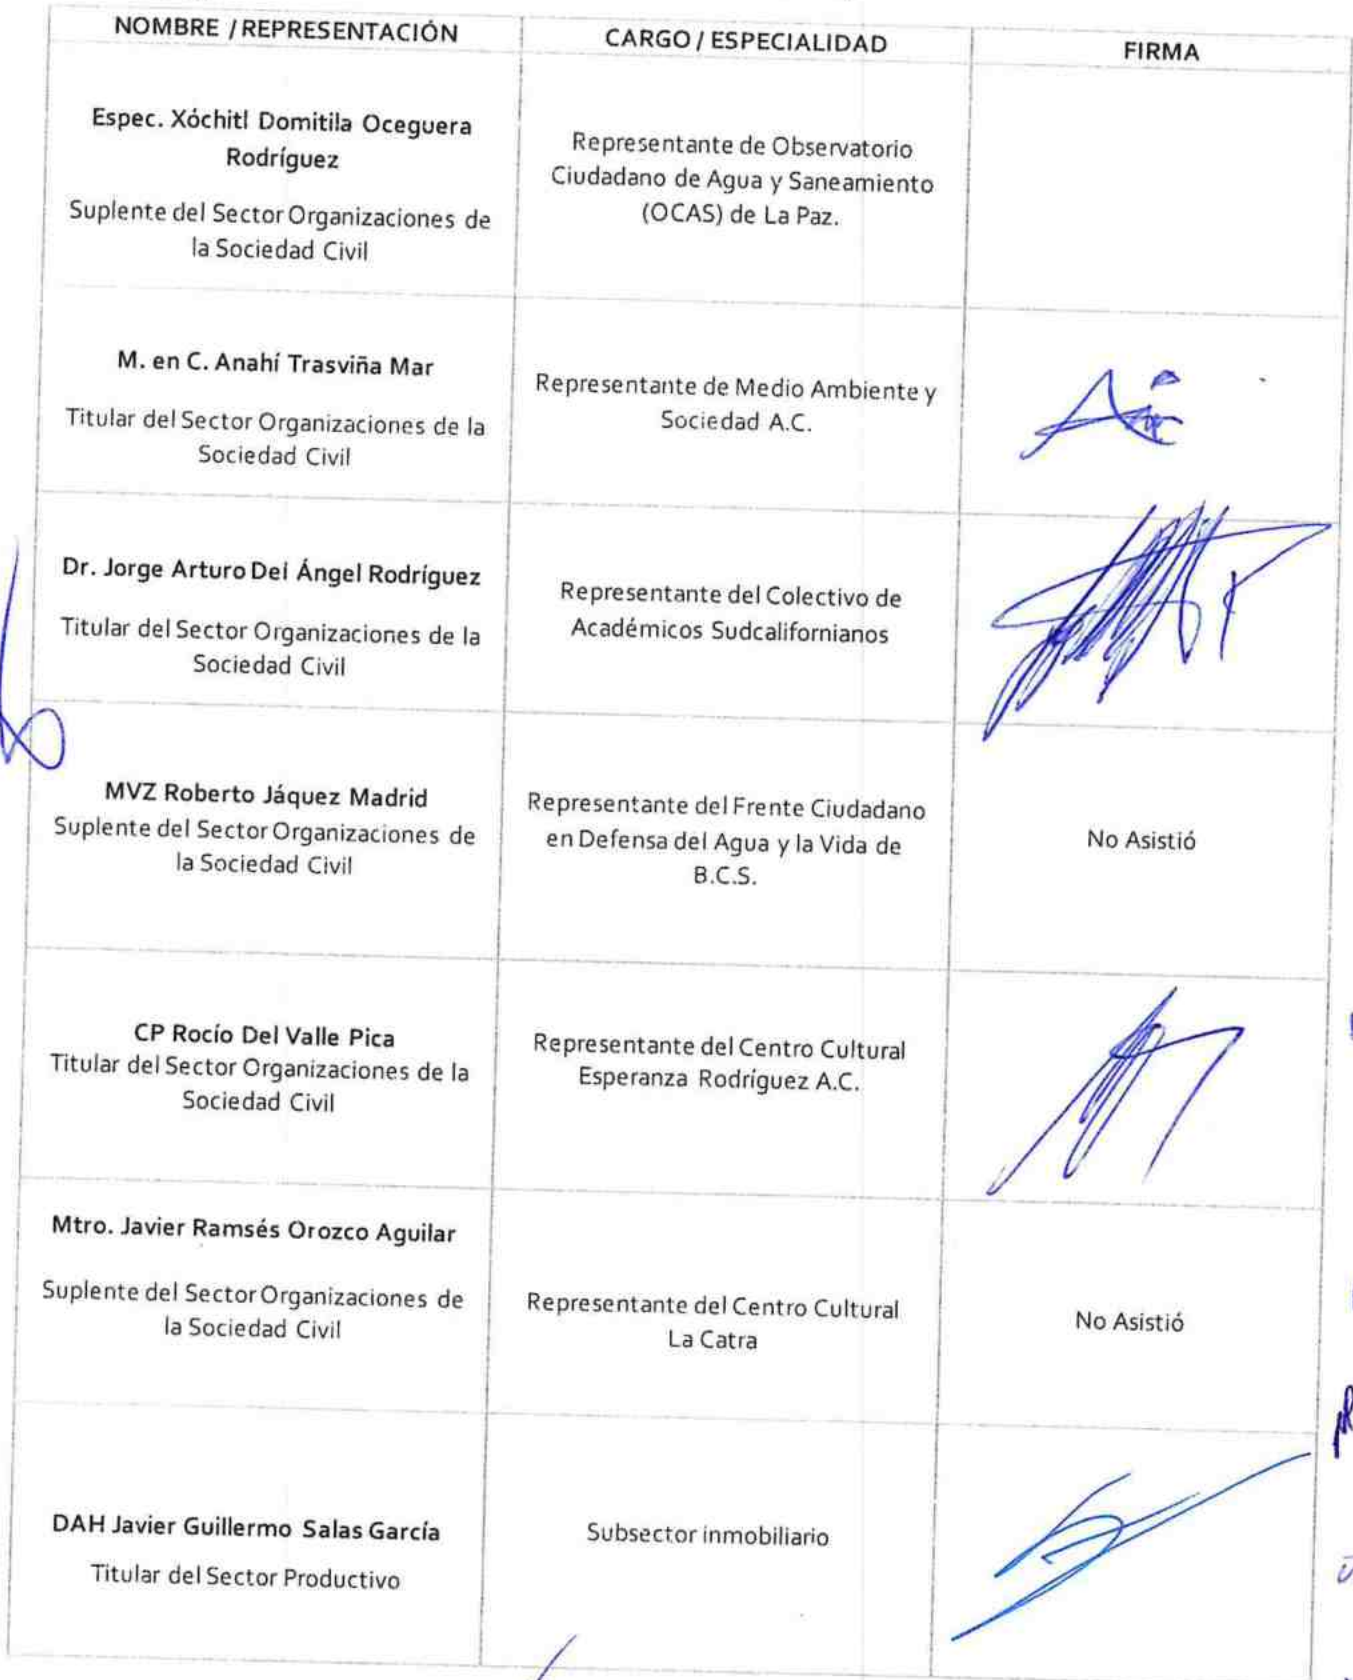 NOMBRE / REPRESENTACIÓN
CARGO / ESPECIALIDAD
FIRMA
Espec. Xóchitl Domitila Oceguera
Rodríguez
Suplente del Sector Organizaciones de
la Sociedad Civil
Representante de Observatorio
Ciudadano de Agua y Saneamiento
(OCAS) de La Paz.
M. en C. Anahí Trasviña Mar
Titular del Sector Organizaciones de la
Sociedad Civil
Representante de Medio Ambiente y
Sociedad A.C.
Dr. Jorge Arturo Del Ángel Rodríguez
Titular del Sector Organizaciones de la
Sociedad Civil
Representante del Colectivo de
Académicos Sudcalifornianos
MVZ Roberto Jáquez Madrid
Suplente del Sector Organizaciones de
la Sociedad Civil
Representante del Frente Ciudadano
en Defensa del Agua y la Vida de
B.C.S.
No Asistió
CP Rocío Del Valle Pica
Titular del Sector Organizaciones de la
Sociedad Civil
Representante del Centro Cultural
Esperanza Rodríguez A.C.
Mtro. Javier Ramsés Orozco Aguilar
Suplente del Sector Organizaciones de
la Sociedad Civil
Representante del Centro Cultural
La Catra
No Asistió
DAH Javier Guillermo Salas García
Titular del Sector Productivo
Subsector inmobiliario